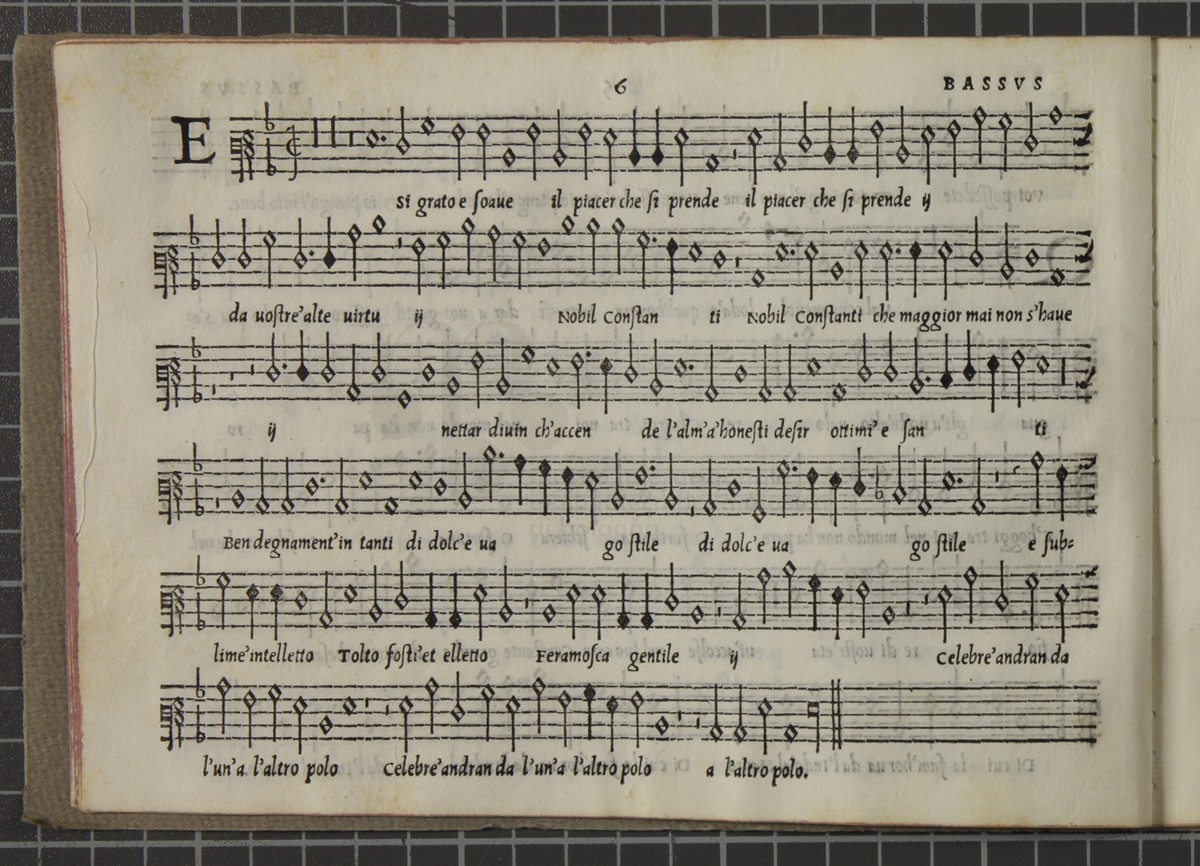 6
BASSVS
E
Si grato e ſoaue il piacer che ſi prende il piacer che ſi prende ij
da uoſtre'alte uirtu ij Nobil Conſtan ti Nobil Conſtanti che maggior mai non s'haue
ij nettar diuin ch'accen de l'alm'a'honeſti deſir ottimi'e ſan ti
Ben degnament'in tanti di dolc'e ua go ſtile di dolc'e ua go ſtile e ſub=
lime'intelletto Tolto foſti'et elletto Feramoſca gentile ij Celebre'andran da
l'un'a l'altro polo Celebre'andran da l'un'a l'altro polo a l'altro polo.